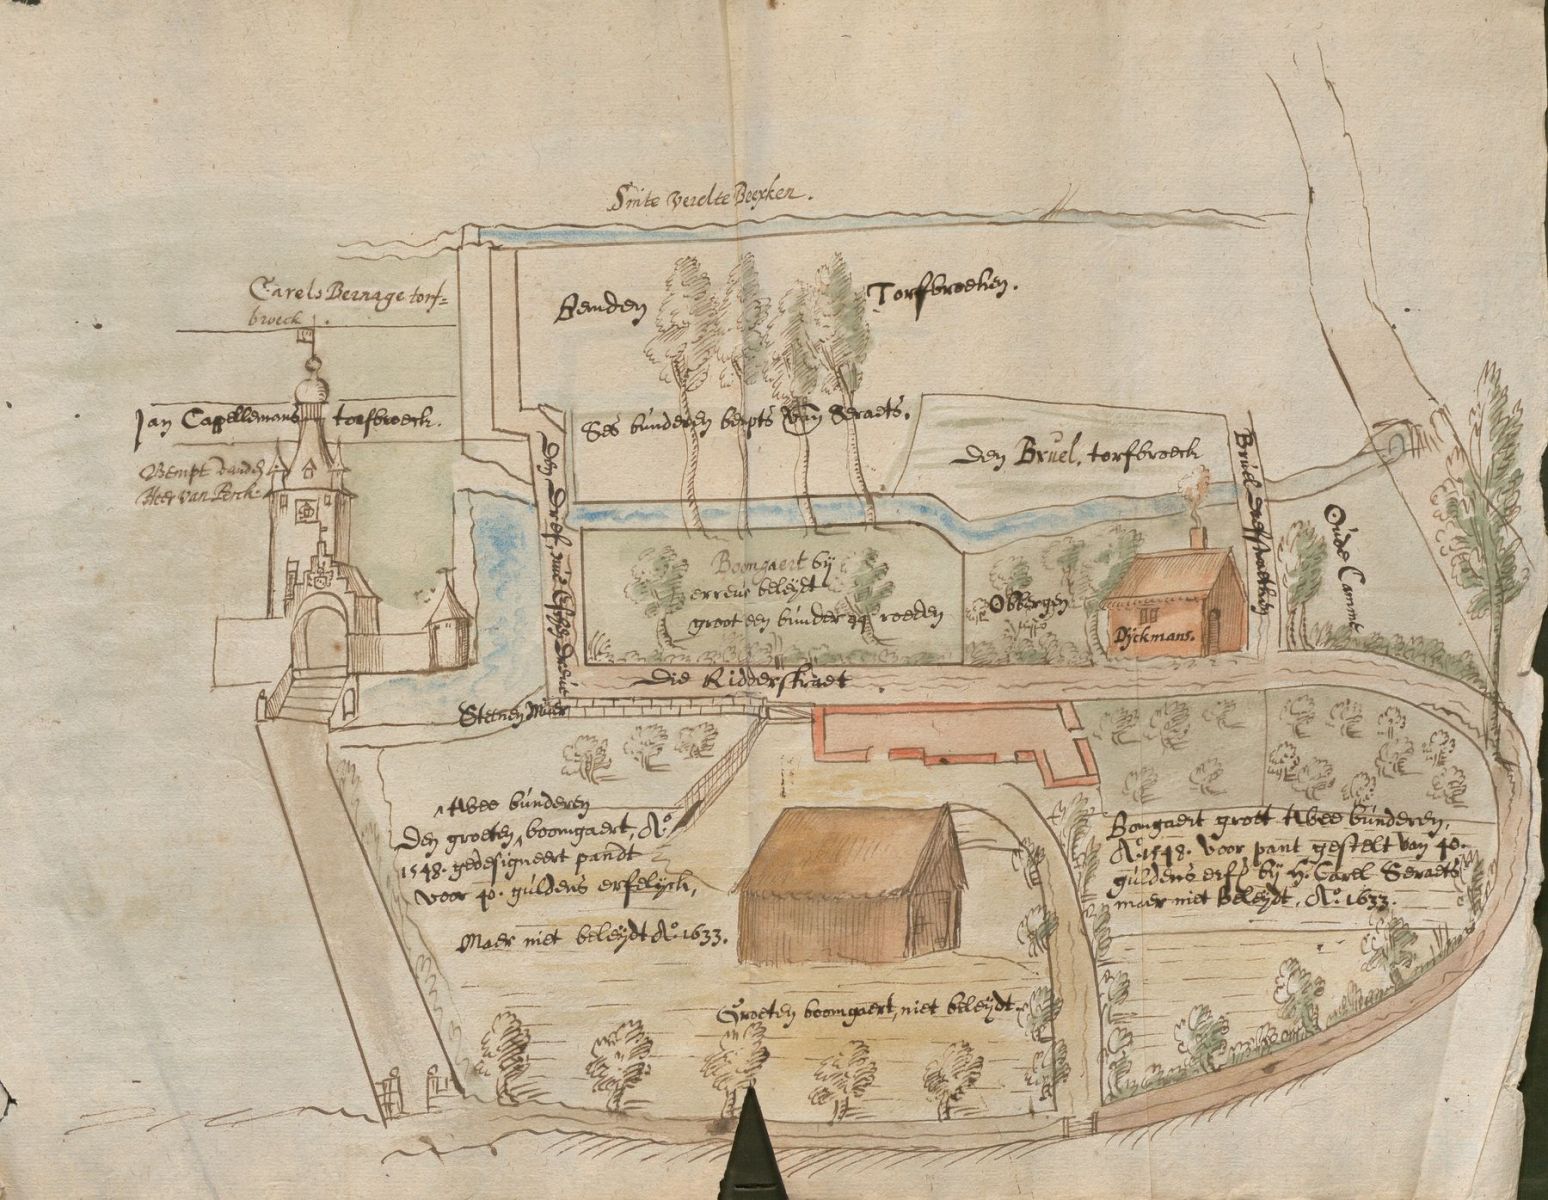 Smte verelte Beexken.
Carels Bernage torf=
broeck.
Benden Torfbroeken.
Jan Cappellemans torfbroeck.
Bempt vanden
Heer van Perck.
Ses bunderen bempts van Seraets.
Den Bruel, torfbroeck
Bruel
Den Dreef,
Oude Camme
Boomgaert by
erreur beleydt
groot een bunder 44 roeden
Obbergen
Dyckmans.
Die Ridderstraet
Steenen Muer
twee bunderen
Den groeten ^ boomgaert, Aº
1548. gedesigneert pandt
voor 40. guldens erfelyck,
Maer niet beleydt Aº. 1633.
Bomgaert groot twee bunderen,
Aº. 1548. voor pant gestelt van 40.
guldens erff. by Hr. Carel Seraets
maer niet beleydt, Aº. 1633.
Groeten boomgaert, niet beleydt.